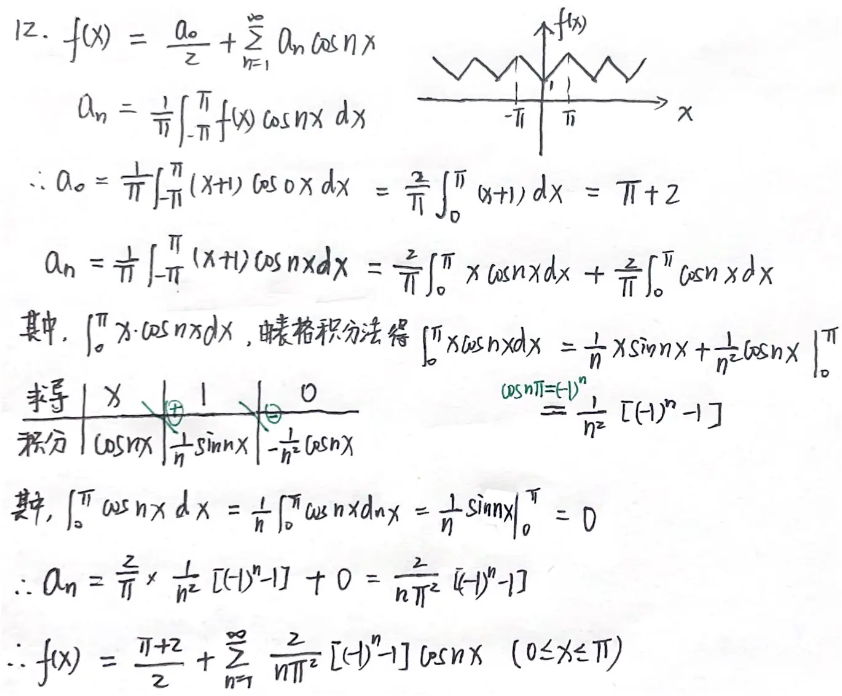 12. f(x) = a₀/2 + ∑_{n=1}^{∞} aₙ cosnx
f(x)
1
-π π x
aₙ = 1/π ∫_{-π}^{π} f(x) cosnx dx
∴ a₀ = 1/π ∫_{-π}^{π} (x+1) cos0x dx = 2/π ∫_0^π (x+1) dx = π+2
aₙ = 1/π ∫_{-π}^{π} (x+1) cosnxdx = 2/π ∫_0^π x cosnxdx + 2/π ∫_0^π cosnxdx
其中, ∫_0^π x·cosnxdx, 由表格积分法得 ∫_0^π xcosnxdx = 1/n x sinnx + 1/n² cosnx |_0^π
求导 | x | 1 | 0
⊕ ⊖
积分 | cosnx | 1/n sinnx | -1/n² cosnx
cosnπ=(-1)ⁿ
= 1/n² [(-1)ⁿ-1]
其中, ∫_0^π cosnxdx = 1/n ∫_0^π cosnxdnx = 1/n sinnx |_0^π = 0
∴ aₙ = 2/π × 1/n² [(-1)ⁿ-1] + 0 = 2/nπ² [(-1)ⁿ-1]
∴ f(x) = π+2/2 + ∑_{n=1}^{∞} 2/nπ² [(-1)ⁿ-1] cosnx (0≤x≤π)